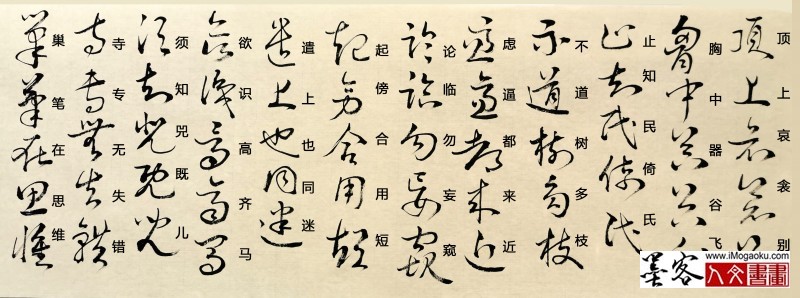 顶上哀衮别
胸中器谷飞
止知民倚氏
不道树多枝
虑逼都来近
论临勿妄窥
起傍合用短
遣上也同迷
欲识高齐马
须知兕既儿
寺专无失错
巢笔在思维
墨客
www.iMogaoku.com
人文書畫